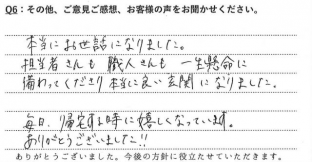 Q6：その他、ご意見ご感想、お客様の声をお聞かせください。
本当にお世話になりました。
担当者さんも 職人さんも 一生懸命に
備わってくださり 本当に良い玄関になりました。
毎日、帰宅する時に嬉しくなっています。
ありがとうございました!!
ありがとうございました。今後の方針に役立たせていただきます。